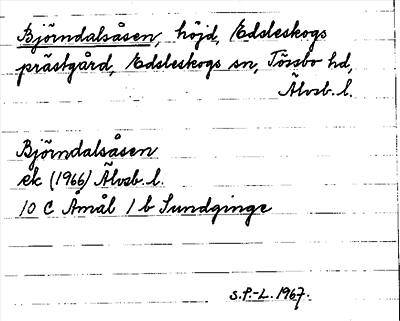 Björndalsåsen, höjd, Edsleskogs
prästgård, Edsleskogs sn, Tössbo hd,
Älvsb. l.
Björndalsåsen
ek (1966) Älvsb. l.
10 C Åmål 1 b Sundginge
S.F.-L. 1967.